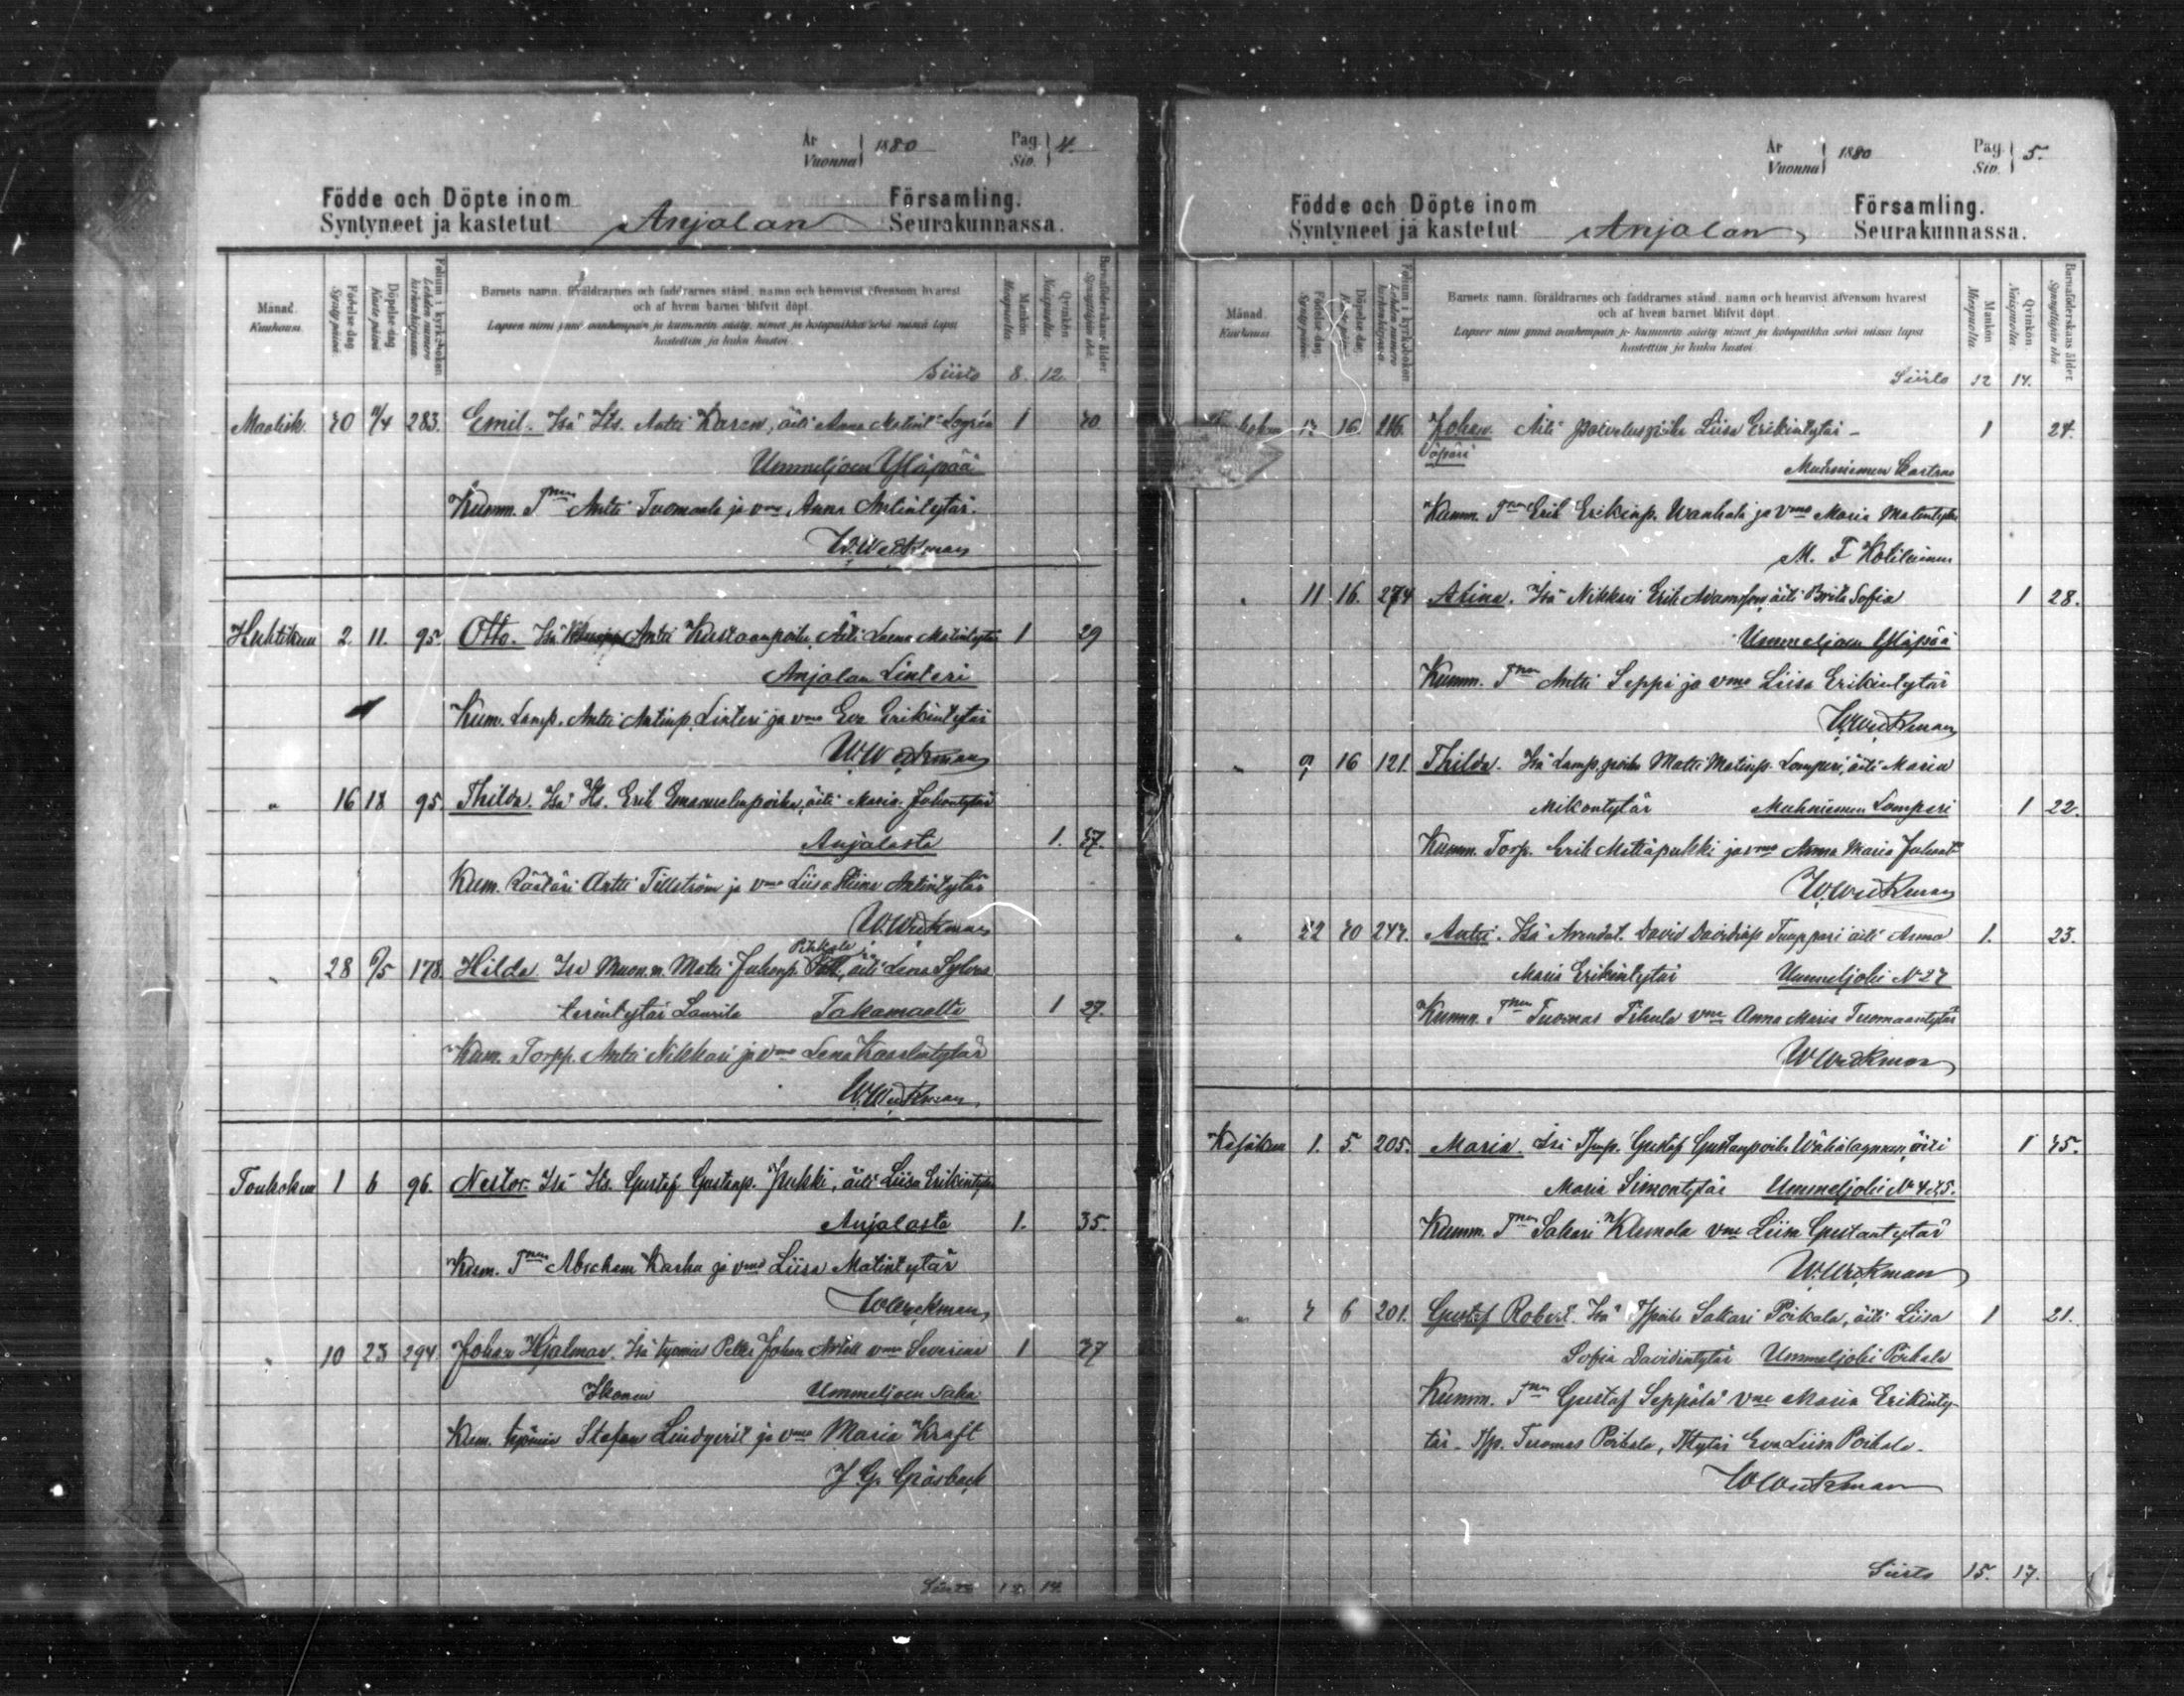 År
Vuonna 1880
Pag.
Siv. 4.
Födde och Döpte inom Församling.
Syntyneet ja kastetut Anjalan Seurakunnassa.
Månad. Kuukausi.
Födelse-dag. Syntypäivä.
Döpelse-dag. Kaste päivä
Folium i kyrkboken. Lehden numero kirkonkirjassa.
Barnets namn, föräldrarnes och faddrarnes stånd, namn och hemvist äfvensom hvarest
och af hvem barnet blifvit döpt.
Lapsen nimi ynnä vanhempain ja kummein sääty, nimet ja kotopaikka sekä missä lapsi
kastettiin ja kuka kastoi.
Mankön Miespuolia.
Qvinkön Naispuolia.
Barnaföderskans ålder. Synnyttäjän ikä.
Siirto 8. 12.
Maalisk. 283. Emil. Isä Its. Antti Karen, äiti Anna 1
Ummeljoen Yläpää
Kumm. Tmes Antti Tuomala ja vmo Anna Antintytär.
W. Weckman
Huhtikuu 2. 11. 95. Otto. Isä Antti Kustaanpoika, Äiti Leena Matintytär 1 29
Anjalan Linteri
Kum. Lamp. Antti Antinp. Linteri ja vmo Eva Erikintytär
W. Weckman
" 16 18 95 Thilda. Isä Its. Erik Emanuelinpoika, äiti Maria Juhontytär
Anjalasta 1.
Kum. Räätäri Antti Tillström ja vmo Liisa Stiina Antintytär
W. Weckman
" 28 6/5 178. Hilda. Isä Matti Juhonp. äiti Lena
Laurila Takamaalta 1 27.
Kum. Torpp. Antti Nikkari ja vmo Lena Kaarlentytär
W. Weckman
Toukokuu 1 6 96. Nestor. Isä Its. Gustaf Gustafp. Pukki, äiti Liisa Erikintytär
Anjalasta 1. 35.
Kum. Tmes Abraham Karhu ja vmo Liisa Matintytär
W. Weckman
" 10 23 294. Johan Hjalmar. Isä työmies Johan vmo Severina 1
Ikonen Ummeljoen Saha
Kum. työmies Stefan Lindqvist ja vmo Maria Kraft
J. G. Gråsbeck
Siirto 12. 14.
År
Vuonna 1880
Pag.
Siv. 5.
Födde och Döpte inom Församling.
Syntyneet ja kastetut Anjalan Seurakunnassa.
Månad. Kuukausi.
Födelse-dag. Syntypäivä.
Döpelse-dag. Kaste päivä
Folium i kyrkboken. Lehden numero kirkonkirjassa.
Barnets namn, föräldrarnes och faddrarnes stånd, namn och hemvist äfvensom hvarest
och af hvem barnet blifvit döpt.
Lapsen nimi ynnä vanhempain ja kummein sääty, nimet ja kotopaikka sekä missä lapsi
kastettiin ja kuka kastoi.
Mankön Miespuolia.
Qvinkön Naispuolia.
Barnaföderskans ålder. Synnyttäjän ikä
Siirto 12 14.
16. 216. Johan Äiti palveluspiika Liisa Erikintytär – 1 24.
Äpärä
Muhniemen
Kumm. Tmes Erik Erikinp. Wanhala ja vmo Maria Matintytär
M. F. Kotilainen
" 11 16. 274 Isä Nikkari Erik Adamsson, äiti Brita Sofia 1 28.
Ummeljoen Yläpää
Kumm. Tmes Antti Seppä ja vmo Liisa Erikintytär
W. Weckman
" 9 16 121. Thilda. Isä Lamp. poika Matti Matinp. Lamperi, äiti Maria
Mikontytär Muhniemen Lamperi 1 22.
Kumm. Torp. Erik ja vmo Anna Maria Juhont.
W. Weckman
" 22 247. Antti. Isä David Davidinp. äiti Anna 1. 23.
Maria Erikintytär Ummeljoki N 27
Kumm. Tmes Tuomas vmo Anna Maria Tuomaantytär
W. Weckman
Kesäkuu 1. 5. 205. Maria. Isä Gustaf Gustavpoika äiti 1 45.
Maria Simontytär Ummeljoki N 4, 5.
Kumm. Tmes Sakari Klemola vmo Liisa Gustavntytär
W. Weckman
" 6 201. Gustaf Robert. Isä Tpoika Sakari Poikala, äiti Liisa 1 21.
Sofia Davidintytär Ummeljoki Poikala
Kumm. Tmes Gustaf Seppälä vmo Maria Erikinty-
tär – Tp. Tuomas Poikala, Ttytär Eva Liisa Poikala.
W. Weckman
Siirto 15. 17.